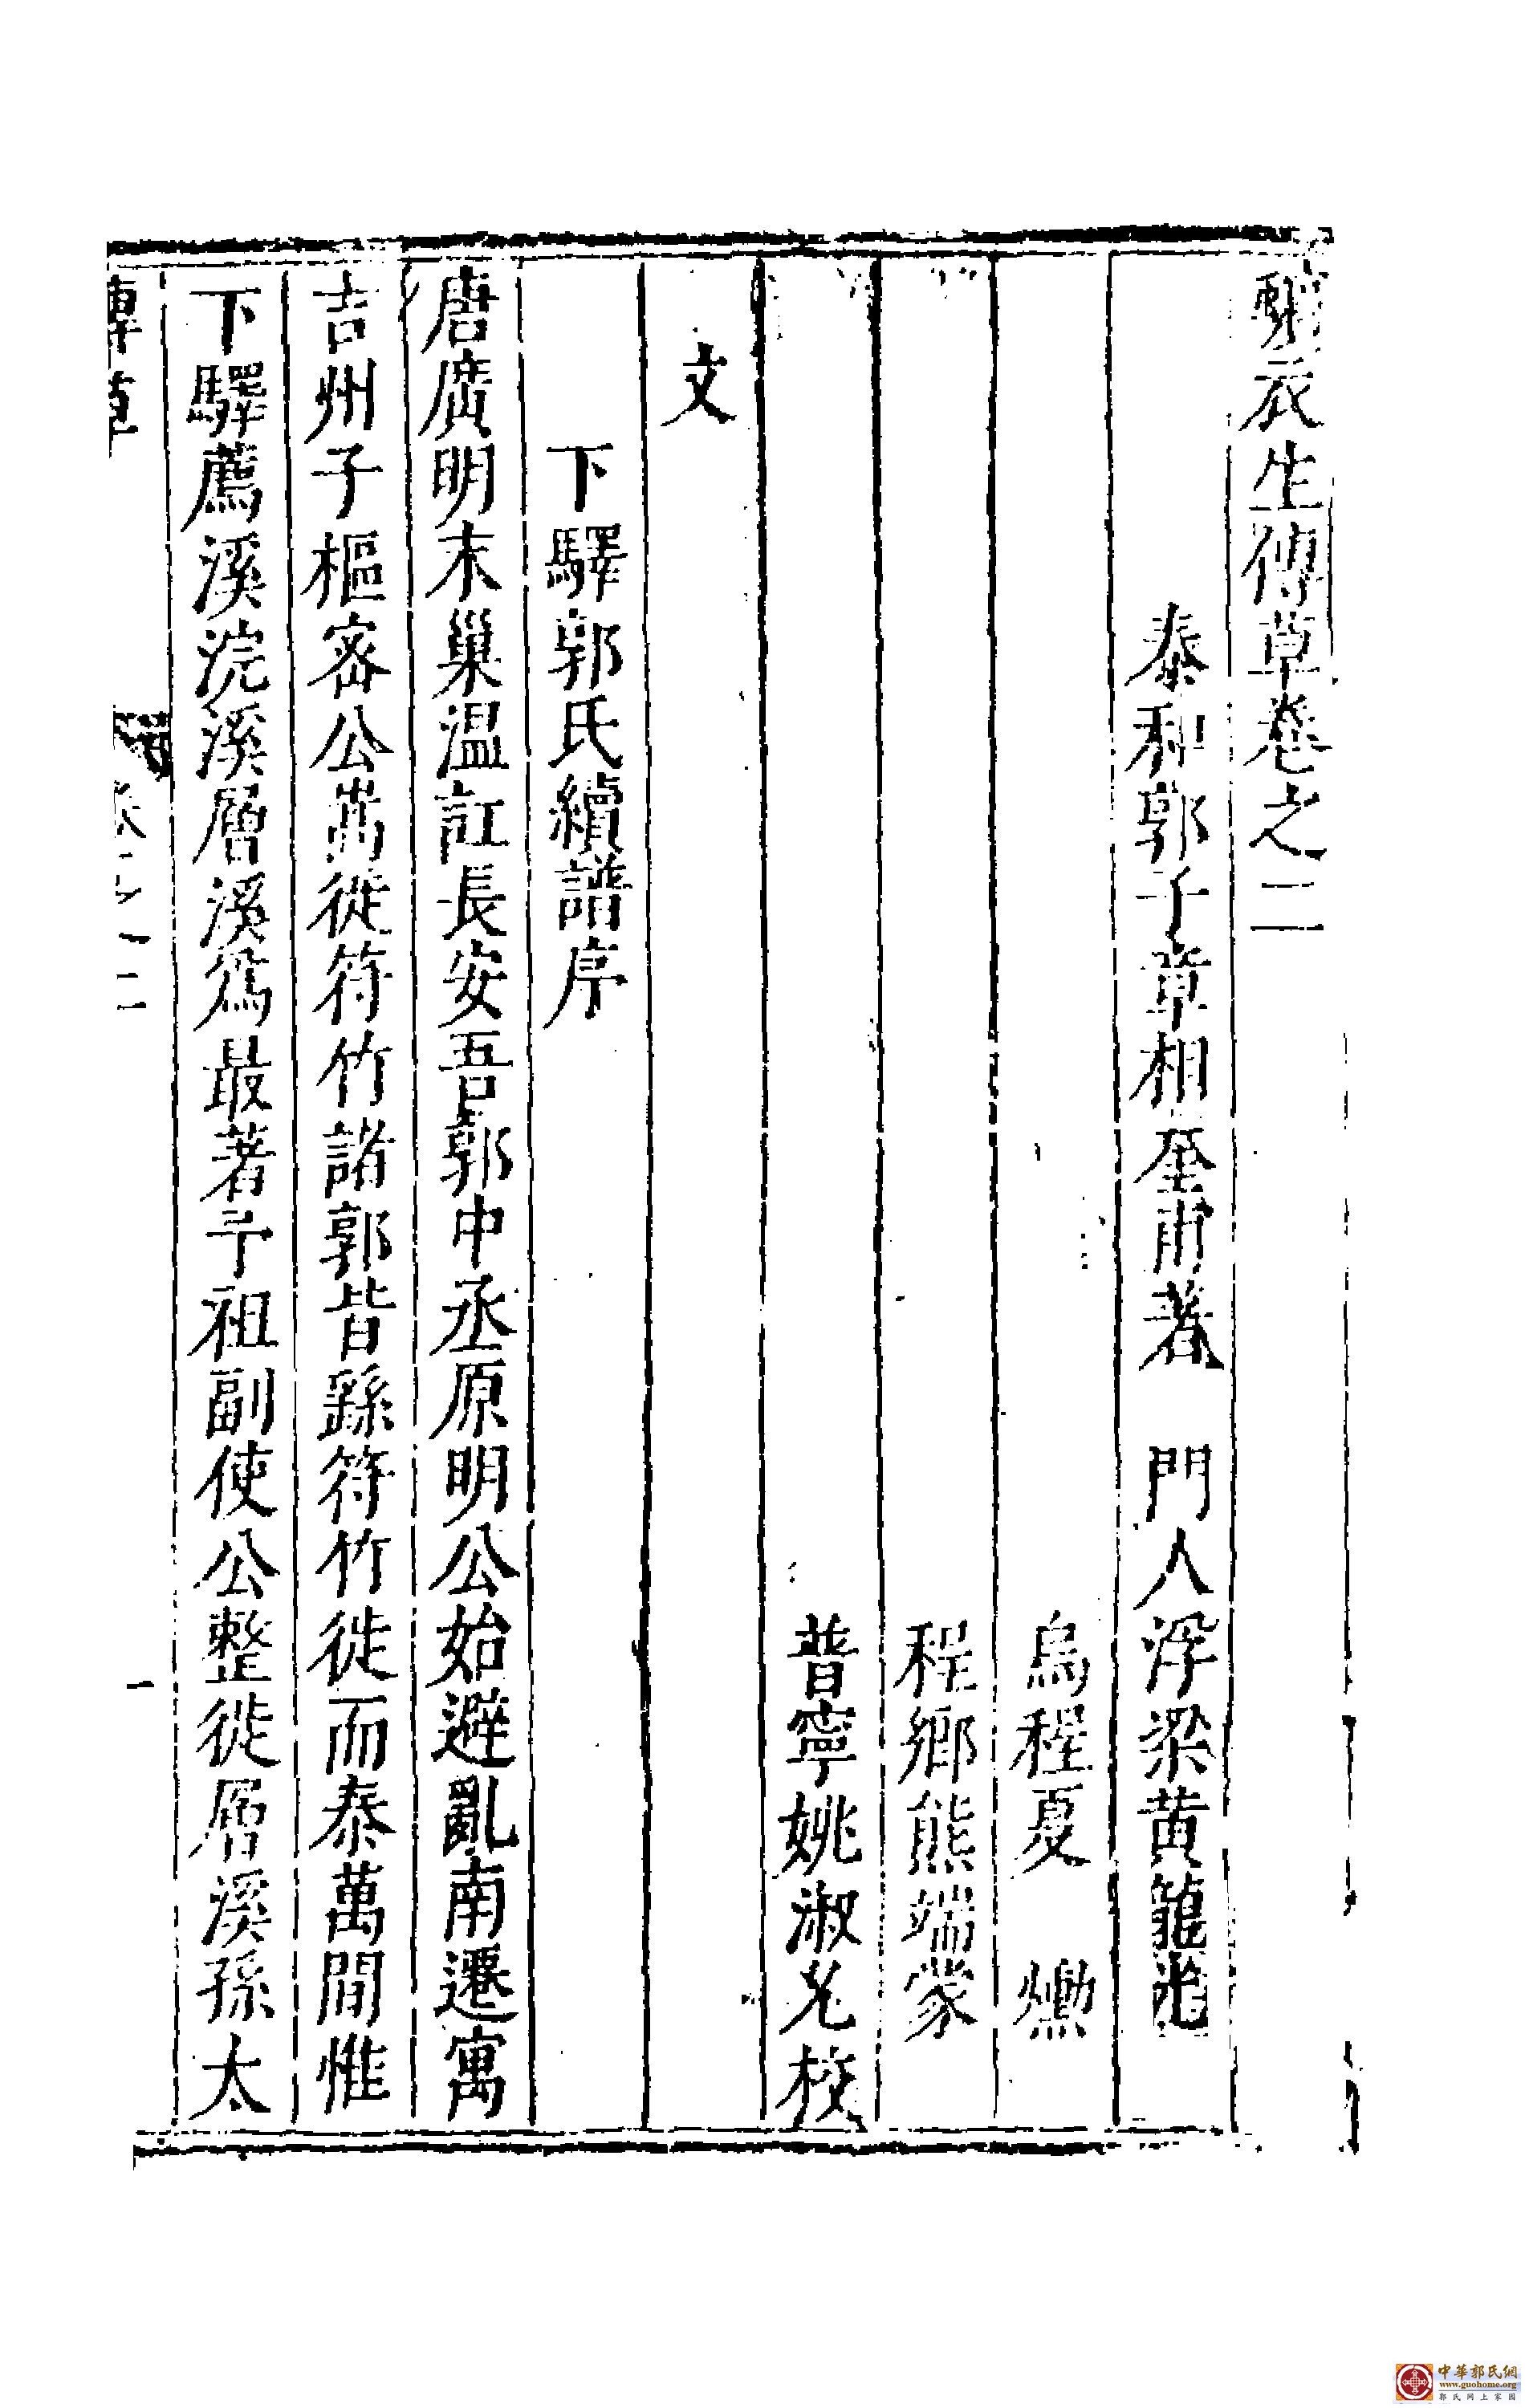 蠙衣生傳草卷之二
泰和郭子章相奎甫著　門人浮梁黃龍光
烏程夏　爋
程鄉熊端蒙
普寧姚淑允校
文
下驛郭氏續譜序
唐廣明末巢溫訌長安吾郭中丞原明公始避亂南遷寓
吉州子樞密公嵩徙符竹諸郭皆繇符竹徙而泰萬間惟
下驛薦溪浣溪層溪爲最著予祖副使公整徙層溪孫太
傳草
卷之二
一
中華郭氏網
www.guohome.org
郭氏网上家园